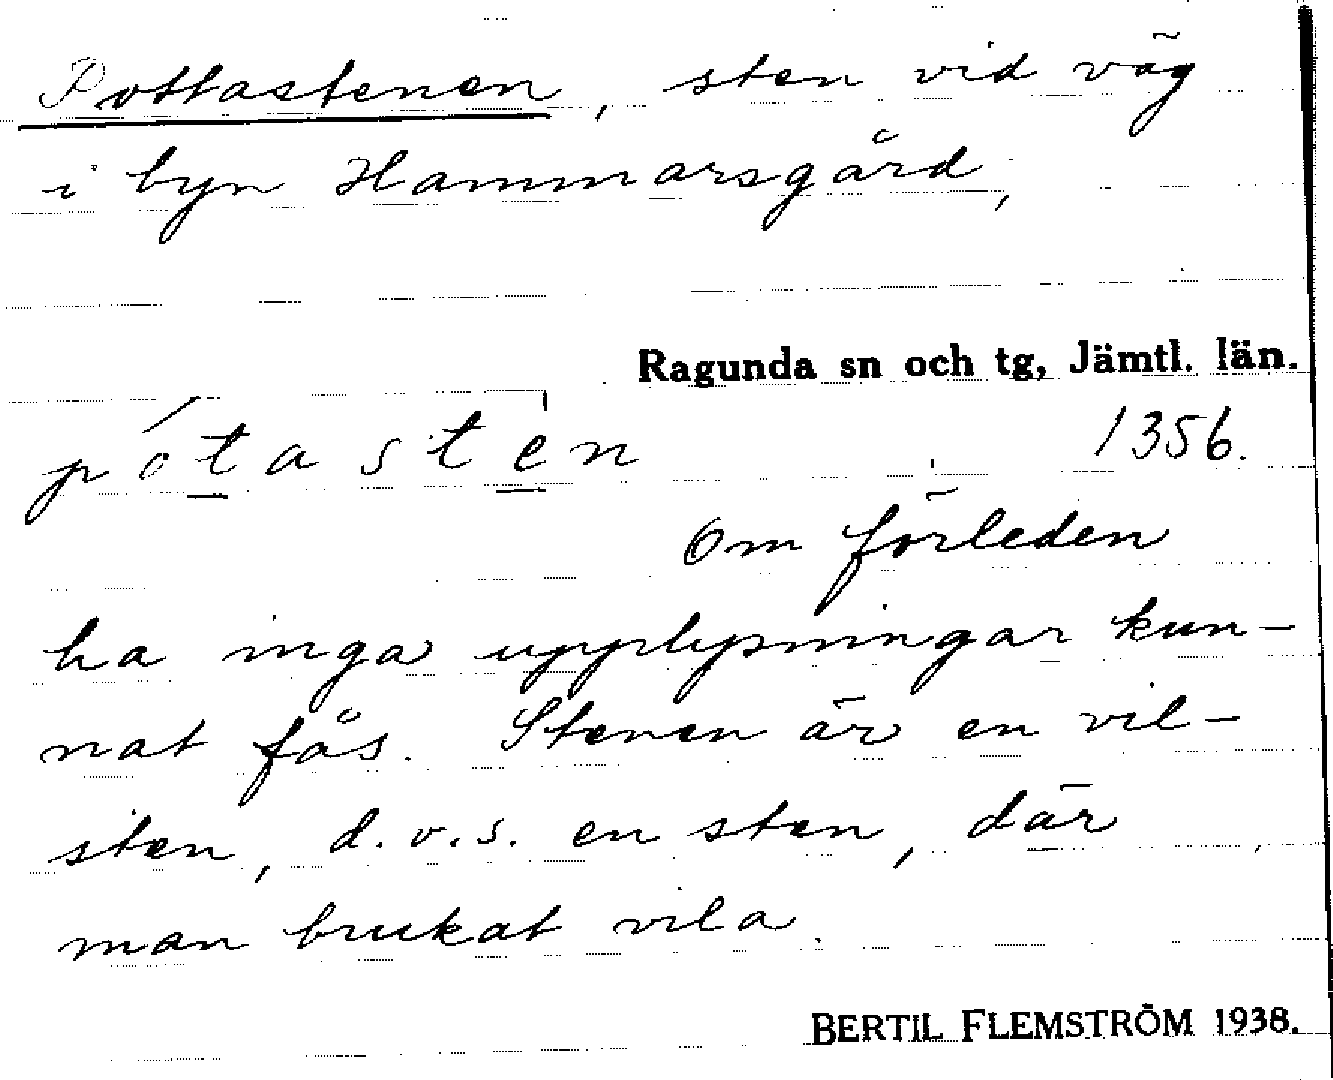 Pottastenen, sten vid väg
i byn Hammarsgård,
Ragunda sn och tg, Jämtl. län.
pótastèn
1356.
Om förleden
ha inga upplysningar kun-
nat fås. Stenen är en vil-
sten, d.v.s. en sten, där
man brukat vila.
BERTIL FLEMSTRÖM 1938.